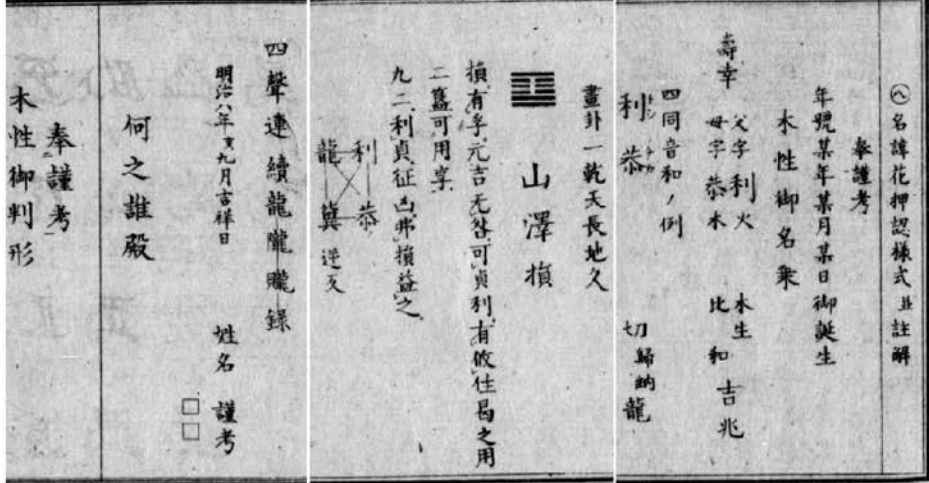 ㈧名諱花押認樣式並註解
奉謹考
年號某年某月某日御誕生
木性御名乘
壽幸
父字利火 木生
母字恭木 比和 吉兆
四同音和ノ例
利恭 切歸納龍
畫卦一乾天長地久
山澤損
損、有孚、元吉无咎、可貞、利有攸往、曷之用
二簋可用享
九二、利貞、征凶、弗損益之
利恭
龍 逆反
四聲連續龍隴曨錄
明治八年亥九月吉祥日
姓名 謹考
□□
何之誰殿
奉謹考
木性御判形